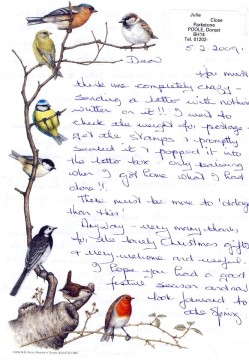 Julia
Close
Parkstone
POOLE, Dorset
BH14
Tel. 01202
5.2.2009.
Dear
you must
think me completely crazy -
sending a letter with nothing
written on it!! I went to
check the weight for postage
got the stamps & promptly
sealed it & popped it into
the letter box! Only realising
when I got home what I had
done!!
There must be more to 'old age
than this'!
Anyway - very many thanks
for the lovely Christmas gifts
very welcome and useful
I hope you had a good
festive season and now
look forward to
the Spring